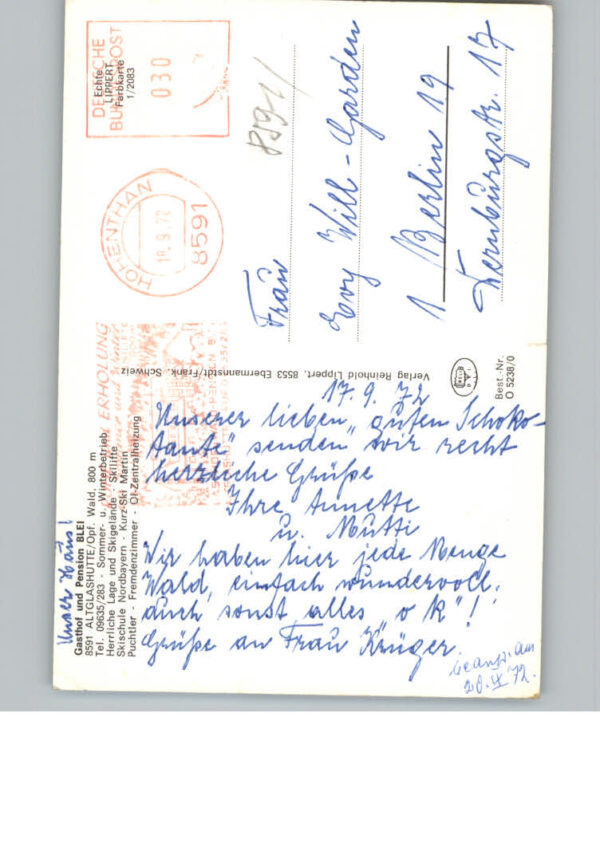 Unser Haus!
Gasthof und Pension BLEI
8591 ALTGLASHÜTTE/Opf. Wald, 800 m
Tel. 09635/283 - Sommer- u. Winterbetrieb
Herrliche Lage und Skigelände - Skilifte
Skischule Nordbayern - Kurz-Ski Martin
Puchtler - Fremdenzimmer - Öl-Zentralheizung
17.9.72
Unserer lieben „guten Schoko-
tante" senden wir recht
herzliche Grüße
Ihre Annette
u. Mutti
Wir haben hier jede Menge
Wald, einfach wundervoll.
Auch sonst alles „o k"!
Grüße an Frau Krüger.
beantw. am
20.IX.72.
Verlag Reinhold Lippert, 8553 Ebermannstdt/Fränk. Schweiz
Best.-Nr.
O 5238/0
Echte
LIPPERT
Farbkarte
1/2083
DEUTSCHE
BUNDESPOST
030
HOHENTHAN
18.9.72
8591
ERHOLUNG
8591
Frau
Evy Will-Garden
1 Berlin 19
Dernburgstr. 17